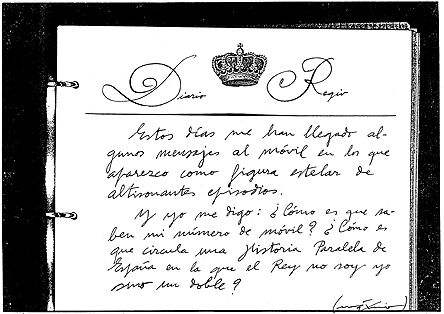 Diario Regio
Estos días me han llegado al-
gunos mensajes al móvil en los que
aparezco como figura estelar de
altisonantes episodios.
Y yo me digo: ¿Cómo es que sa-
ben mi número de móvil? ¿Cómo es
que circula una Historia Paralela de
España en la que el Rey no soy yo
sino un doble?
(máximo)